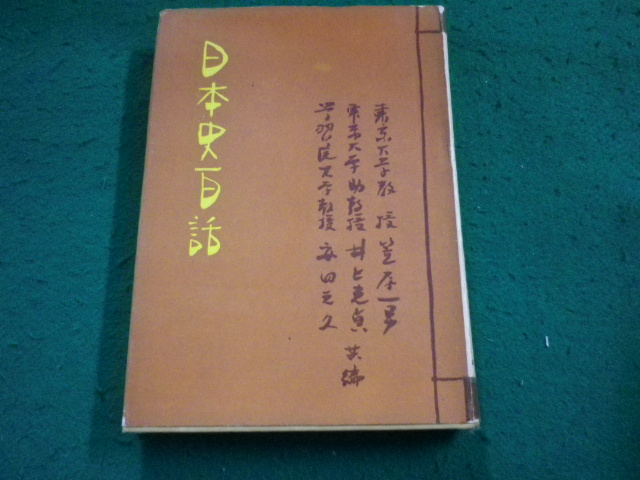 日本史百話
東京大学教授 笠原一男
東京大学助教授 井上光貞 共編
学習院大学教授 安田元久